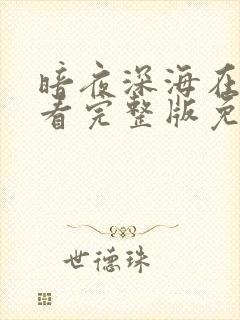 暗夜深海在
看完整版免
世德珠